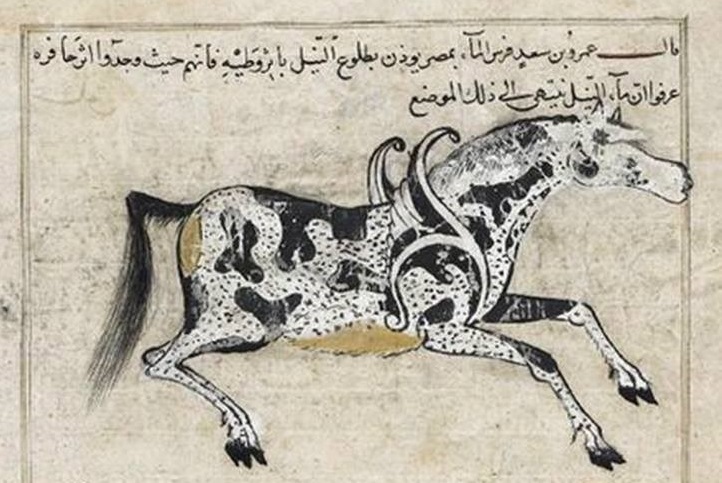 قال عمرو بن سعيد فرس المآء بمصر يوذن بطلوع النيل باثر وطيه فانهم حيث وجدوا اثر حافره
عرفوا ان مآء النيل ينتهى الى ذلك الموضع